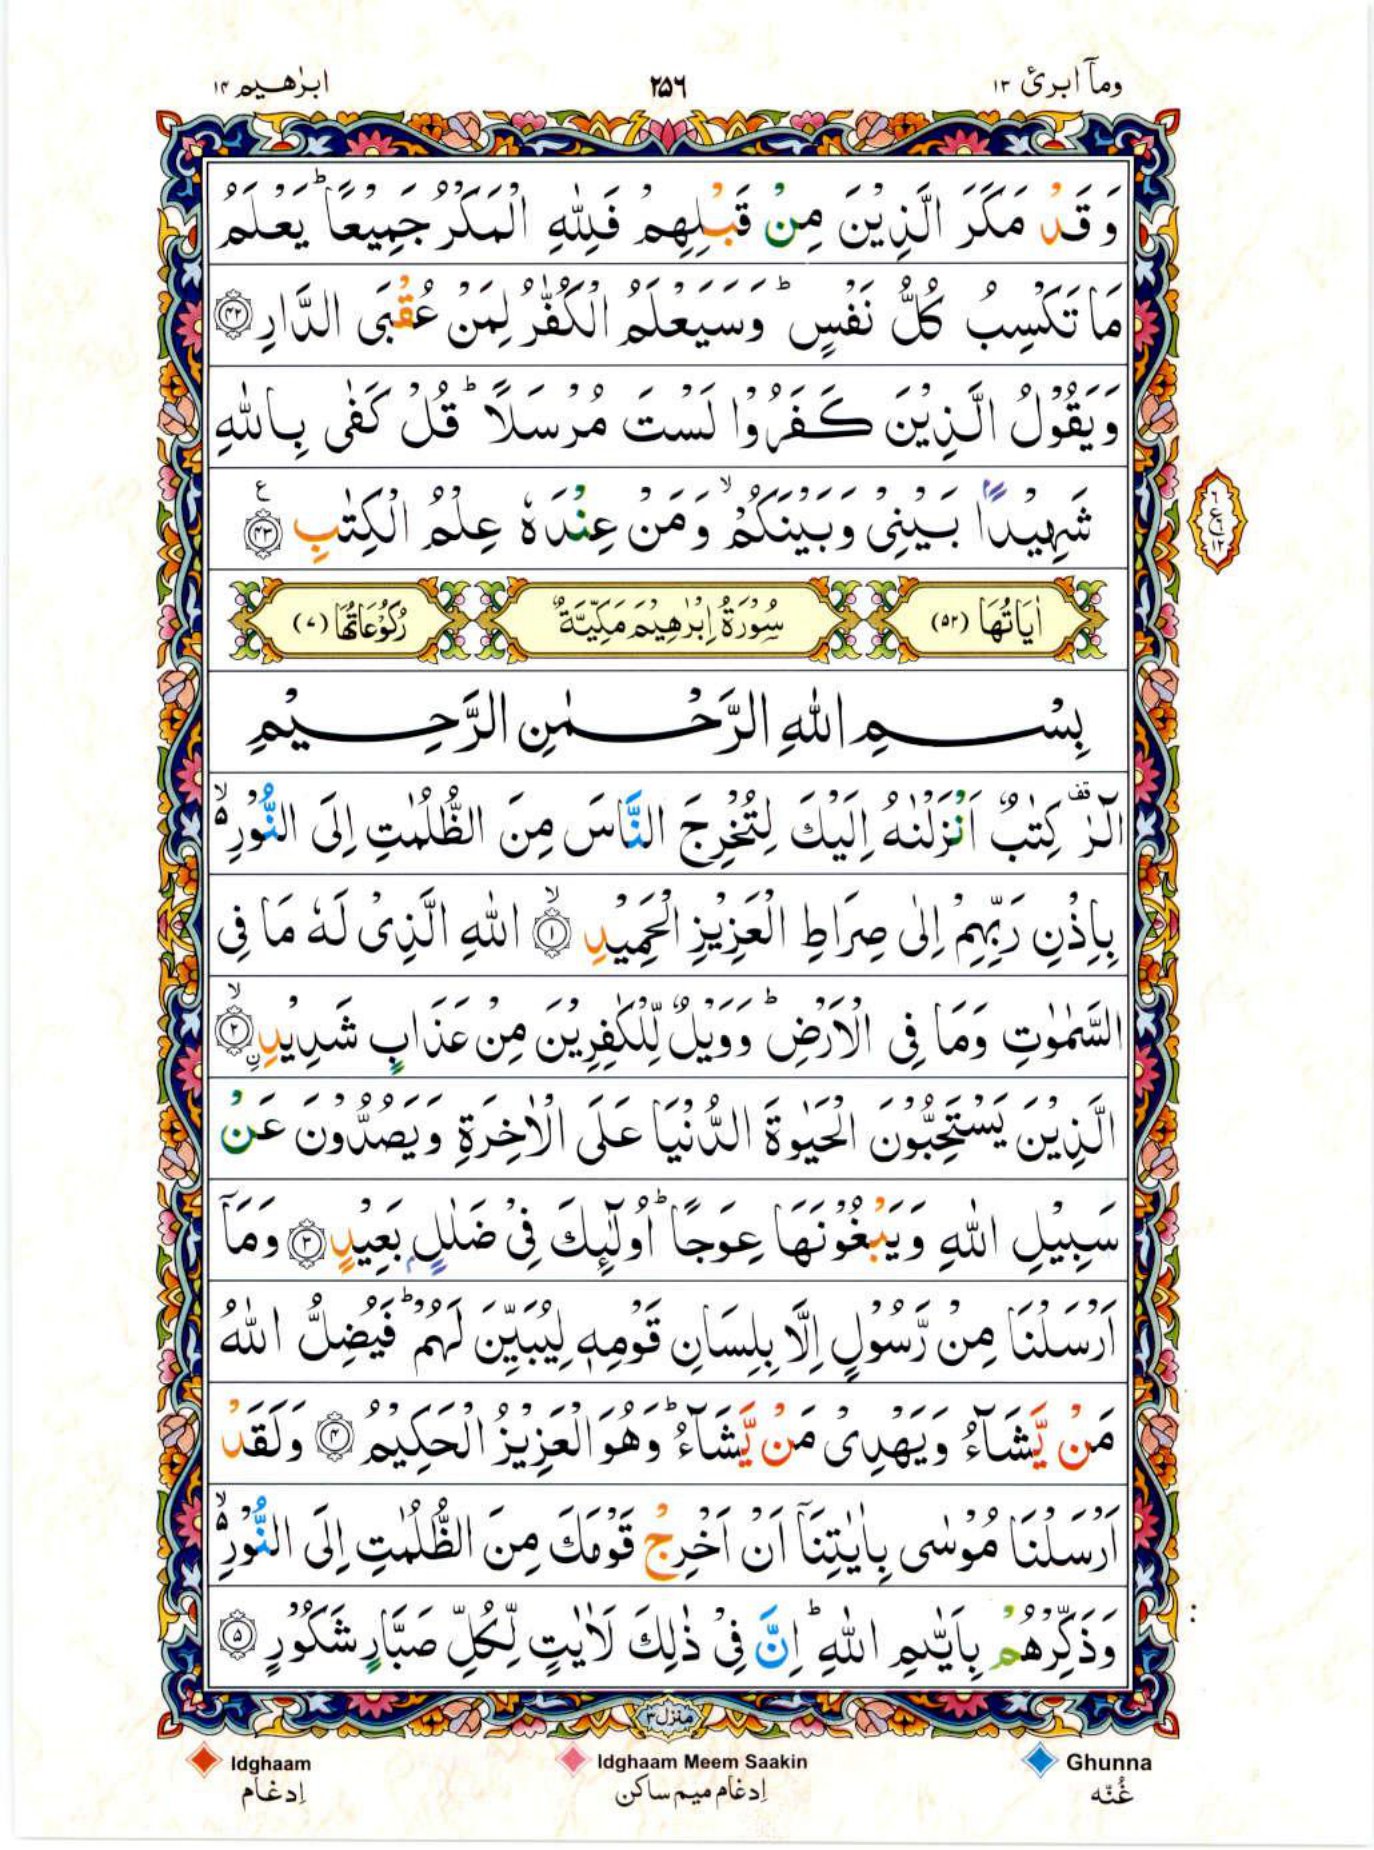 ابرٰهيم ١٤ ٢٥٦ ومآ ابرئ ١٣
وَقَدْ مَكَرَ الَّذِيْنَ مِنْ قَبْلِهِمْ فَلِلّٰهِ الْمَكْرُ جَمِيْعًا ؕ يَعْلَمُ
مَا تَكْسِبُ كُلُّ نَفْسٍ ؕ وَسَيَعْلَمُ الْكُفّٰرُ لِمَنْ عُقْبَى الدَّارِ ﴿٤٢﴾
وَيَقُوْلُ الَّذِيْنَ كَفَرُوْا لَسْتَ مُرْسَلًا ؕ قُلْ كَفٰى بِاللّٰهِ
شَهِيْدًۢا بَيْنِىْ وَبَيْنَكُمْ ۙ وَمَنْ عِنْدَهٗ عِلْمُ الْكِتٰبِ ﴿٤٣﴾ ع
٦
ع
٦
١٢
اٰيَاتُهَا (٥٢) سُوْرَةُ اِبْرٰهِيْمَ مَكِّيَّةٌ رُكُوْعَاتُهَا (٧)
بِسْمِ اللّٰهِ الرَّحْمٰنِ الرَّحِيْمِ
الٓرٰ ࣞ كِتٰبٌ اَنْزَلْنٰهُ اِلَيْكَ لِتُخْرِجَ النَّاسَ مِنَ الظُّلُمٰتِ اِلَى النُّوْرِ ۙ۵
بِاِذْنِ رَبِّهِمْ اِلٰى صِرَاطِ الْعَزِيْزِ الْحَمِيْدِ ۙ﴿١﴾ اللّٰهِ الَّذِىْ لَهٗ مَا فِى
السَّمٰوٰتِ وَمَا فِى الْاَرْضِ ؕ وَوَيْلٌ لِّلْكٰفِرِيْنَ مِنْ عَذَابٍ شَدِيْدِ ۙ﴿٢﴾ ن
الَّذِيْنَ يَسْتَحِبُّوْنَ الْحَيٰوةَ الدُّنْيَا عَلَى الْاٰخِرَةِ وَيَصُدُّوْنَ عَنْ
سَبِيْلِ اللّٰهِ وَيَبْغُوْنَهَا عِوَجًا ؕ اُولٰٓئِكَ فِىْ ضَلٰلٍۭ بَعِيْدٍ ﴿٣﴾ وَمَآ
اَرْسَلْنَا مِنْ رَّسُوْلٍ اِلَّا بِلِسَانِ قَوْمِهٖ لِيُبَيِّنَ لَهُمْ ؕ فَيُضِلُّ اللّٰهُ
مَنْ يَّشَآءُ وَيَهْدِىْ مَنْ يَّشَآءُ ؕ وَهُوَ الْعَزِيْزُ الْحَكِيْمُ ﴿٤﴾ وَلَقَدْ
اَرْسَلْنَا مُوْسٰى بِاٰيٰتِنَآ اَنْ اَخْرِجْ قَوْمَكَ مِنَ الظُّلُمٰتِ اِلَى النُّوْرِ ۙ۵
وَذَكِّرْهُمْ بِاَيّٰىمِ اللّٰهِ ؕ اِنَّ فِىْ ذٰلِكَ لَاٰيٰتٍ لِّكُلِّ صَبَّارٍ شَكُوْرٍ ﴿٥﴾
منزل ٣
Idghaam Idghaam Meem Saakin Ghunna
إدغام إدغام ميم ساكن غُنّه